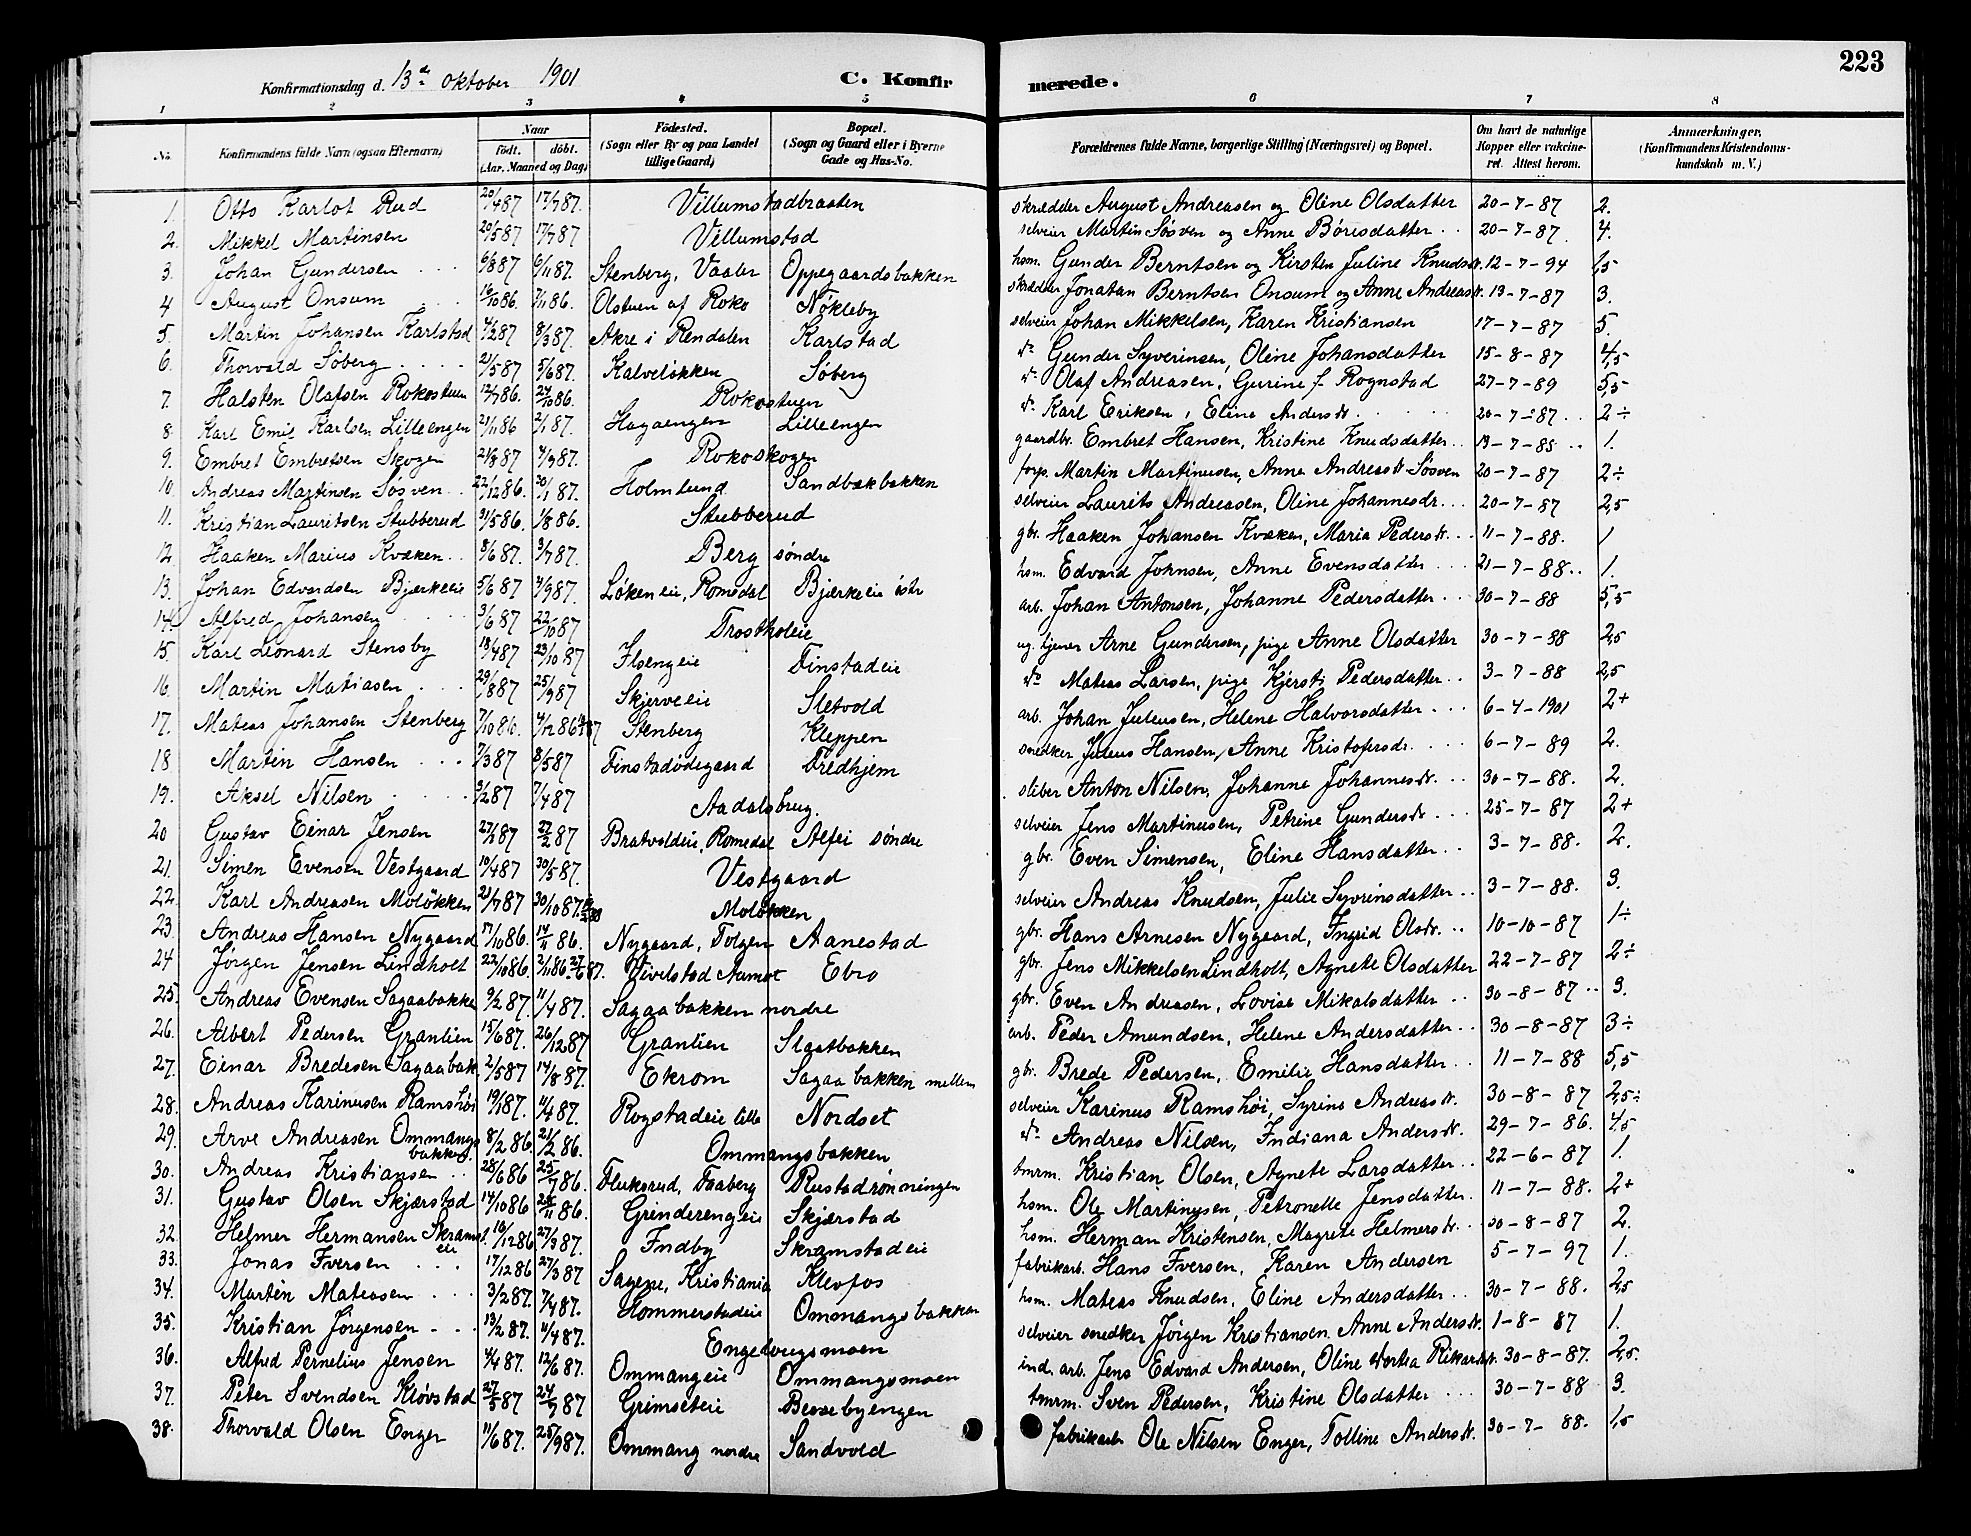 223
Konfirmationsdag d. 13de oktober 1901 C. Konfir merede.
1 2 3 4 5 6 7 8
No. Konfirmandens fulde Navn (ogsaa Efternavn) Naar født. døbt. (Aar, Maaned og Dag) Fødested. (Sogn eller By og paa Landet tillige Gaard) Bopæl. (Sogn og Gaard eller i Byerne Gade og Hus-No. Forældrenes fulde Navne, borgerlige Stilling (Næringsvei) og Bopæl. Om havt de naturlige Kopper eller vakcineret. Attest herom. Anmærkninger. (Konfirmandens Kristendomskundskab m. V.)
1. Otto Karlot Rud 20/4 87 17/7 87. Villumstadbraaten skrædder August Andreasen og Oline Olsdatter 20-7-87 2.
2. Mikkel Martinsen 20/5 87 17/7 87 Villumstad selveier Martin Søsven og Anne Børisdatter 20-7-87 4.
3. Johan Gundersen 6/8 87 6/11 87. Stenberg, Vaaler Oppegaardsbakken hsm. Gunder Berntsen og Kirsten Juline Knudsdr. 12-7-94 1,5
4 August Onsum 16/10 86. 7/11 86. Olstuen af Roko Nøkleby skrædder Jonatan Berntsen Onsum og Anne Andreasdr. 13-7-87 3.
5. Martin Johansen Karlstad 4/2 87 8/3 87. Akre i Rendalen Karlstad selveier Johan Mikkelsen, Karen Kristiansen 17-7-87 5.
6. Thorvald Søberg 21/5 87 5/6 87. Kalveløkken Søberg do Gunder Syverinsen, Oline Johansdatter 15-8-87 4,5
7. Halsten Olafsen Rokostuen 12/7 86. 24/10 86. Rokostuen do Olaf Andreasen, Gurine f. Rognstad 27-7-89 5,5
8. Karl Emil Karlsen Lilleengen 21/11 86 2/1 87. Hagaengen Lilleengen do Karl Eriksen, Eline Andersdr. 20-7-87 2÷
9. Embret Embretsen Skogen 21/3 87 4/7 87. Rokoskogen gaardbr. Embret Hansen, Kristine Knudsdatter 13-7-88 1.
10. Andreas Martinsen Søsven 22/12 86. 20/1 87. Holmlund Sandbækbakken forp. Martin Martinusen, Anne Andreasdr Søsven 20-7-87 2÷
11. Kristian Lauritsen Stubberud 31/5 86. 1/8 86. Stubberud selveier Laurits Andreasen, Oline Johannesdr. 20-7-87 2,5
12 Haaken Marius Kvæken 8/6 87. 3/7 87. Berg søndre gbr. Haaken Johansen Kvæken, Maria Pedersdr. 11-7-88. 1
13. Johan Edvardsen Bjerkeeie 5/6 87 4/9 87. Løkeneie, Romedal Bjerkeeie østr hsm. Edvard Johnsen, Anne Evensdatter 21-7-88 1.
14. Alfred Johansen 3/6 87 22/10 87 Trostholeie arb. Johan Antonsen, Johanne Pedersdatter 30-7-88 5,5
15. Karl Leonard Stensby 18/4 87 23/10 87 Ilsengeie Finstadeie ug. tjener Arne Gundersen, pige Anne Olsdatter 30-7-88 2,5
16. Martin Matiasen 29/8 87 25/9 87 Skjerveeie Sletvold do Mateas Larsen, pige Kjersti Pedersdatter 3-7-88 2,5
17. Mateas Johansen Stenberg 7/10 86. 4/12 86 Stenberg Kleppen arb. Johan Juliusen, Helene Halvorsdatter 6-4-1901 2+
18. Martin Hansen 7/3 87 8/5 87 Finstadødegaard Fredhjem snedker Julius Hansen, Anne Kristofersdr. 6-7-89 2.
19. Aksel Nilsen 9/2 87 7/4 87 Aadalsbrug. sliber Anton Nilsen, Johanne Johannesdr. 30-7-88. 2.
20 Gustav Einar Jensen 27/1 87 27/2 87 Bratvoldeie, Romedal Alfei søndre selveier Jens Martinusen, Petrine Gundersdr. 25-7-87 2+
21. Simen Evensen Vestgaard 10/4 87 30/5 87. Vestgaard gbr. Even Simensen, Eline Hansdatter 3-7-88. 2.
22. Karl Andreasen Moløkken 21/7 87 30/10 87. Moløkken selveier Andreas Knudsen, Julie Syverinsdatter 3-7-88. 3.
23. Andreas Hansen Nygaard 17/10 86. 14/11 86. Nygaard, Tolgen Aanestad gbr. Hans Arnesen Nygaard, Ingrid Olsdr. 10-10-87 1÷
24 Jørgen Jensen Lindholt 22/10 86. 2/11 86. 27/6 87. Vivelstad Aamot Ebro gbr. Jens Mikkelsen Lindholt, Agnete Olsdatter 22-7-87 2÷
25. Andreas Evensen Sagaabakke 9/2 87. 11/4 87. Sagaabakken nordre gbr. Even Andreasen, Lovise Mikalsdatter 30-8-87 3.
26. Albert Pedersen Granlien 15/6 87. 26/12 87 Granlien Slaatbakken arb. Peder Amundsen, Helene Andersdatter 30-8-87 3÷
27. Einar Bredesen Sagaabak 2/5 87 14/8 87. Ekrom Sagaabakken mellem gbr. Brede Pedersen, Emilie Hansdatter 11-7-88 5,5
28. Andreas Karinusen Ramshøi 19/1 87. 11/4 87. Rogstadeie lille Nordset selveier Karinus Ramshøi, Syrine Andreasdr. 30-8-87 2,5÷
29. Arve Andreasen Ommangsbakken 8/2 86. 21/2 86. Ommangsbakken do Andreas Nilsen, Indiana Andersdr. 29-7-86. 4,5
30. Andreas Kristiansen 28/6 86 25/7 86. Flukerud, Faaberg Rustadrønningen tmrm. Kristian Olsen, Agnete Larsdatter 22-6-87 1.
31. Gustav Olsen Skjærstad 14/10 86 28/11 86. Grinderengeie Skjærstad hsm. Ole Martinusen, Petronelle Jensdatter 11-7-88. 2+
32. Helmer Hermansen Skramst.eie 16/12 86 27/3 87. Indby Skramstadeie hsm. Herman Kristensen, Magrete Helmersdr. 30-8-87 2.
33. Jonas Iversen 17/12 86 27/3 87 Sagene, Kristiania Klevfos fabrikarb. Hans Iversen, Karen Andersen 5-7-97 1.
34. Martin Mateasen 3/2 87. 7/4 87. Hommerstadeie Ommangsbakken hsm. Mateas Knudsen, Eline Andersdatter 30-7-88. 2,5
35. Kristian Jørgensen 13/2 87. 11/4 87. Engelaugsmoen selveier snedker Jørgen Kristiansen, Anne Andersdr. 1-8-87 1.
36. Alfred Pernelius Jensen 4/4 87. 12/6 87. Ommangeie Ommangsmoen ind. arb. Jens Edvard Andersen, Oline Dortea Rikardsdr. 30-8-87. 2,5.
37. Peter Svendsen Kløvstad 27/5 87 24/7 87 Grimseteie Bevebyengen tmrm. Sven Pedersen, Kristine Olsdatter 30-7-88 3.
38. Thorvald Olsen Enger 11/6 87. 25/9 87. Ommang nordre Sandvold fabrikarb Ole Nilsen Enger, Tolline Andersdr. 30-7-88. 1,5